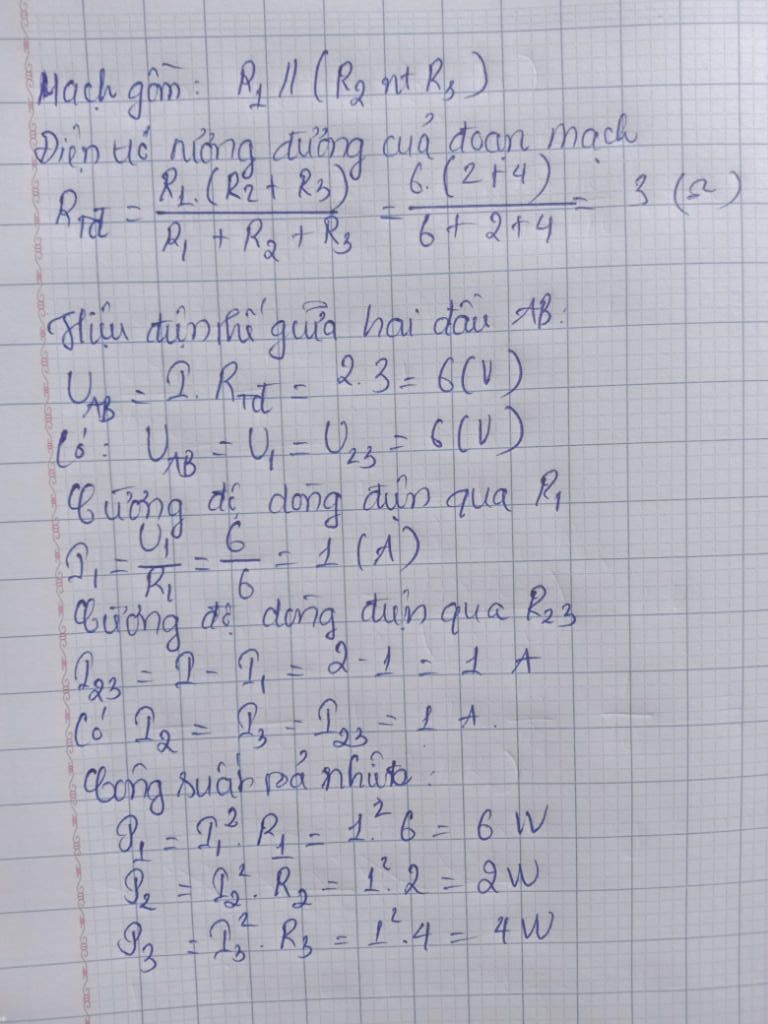 Mạch gồm: R₁ // (R₂ nt R₃)
Điện trở tương đương của đoạn mạch
R_Tđ = \frac{R₁.(R₂ + R₃)}{R₁ + R₂ + R₃} = \frac{6.(2+4)}{6+2+4} = 3 (Ω)
Hiệu điện thế giữa hai đầu AB:
U_AB = I. R_Tđ = 2.3 = 6(V)
Có: U_AB = U₁ = U₂₃ = 6(V)
Cường độ dòng điện qua R₁
I₁ = \frac{U₁}{R₁} = \frac{6}{6} = 1 (A)
Cường độ dòng điện qua R₂₃
I₂₃ = I - I₁ = 2 - 1 = 1 A
Có I₂ = I₃ = I₂₃ = 1 A.
Công suất toả nhiệt:
P₁ = I₁². R₁ = 1². 6 = 6 W
P₂ = I₂². R₂ = 1². 2 = 2W
P₃ = I₃². R₃ = 1².4 = 4W